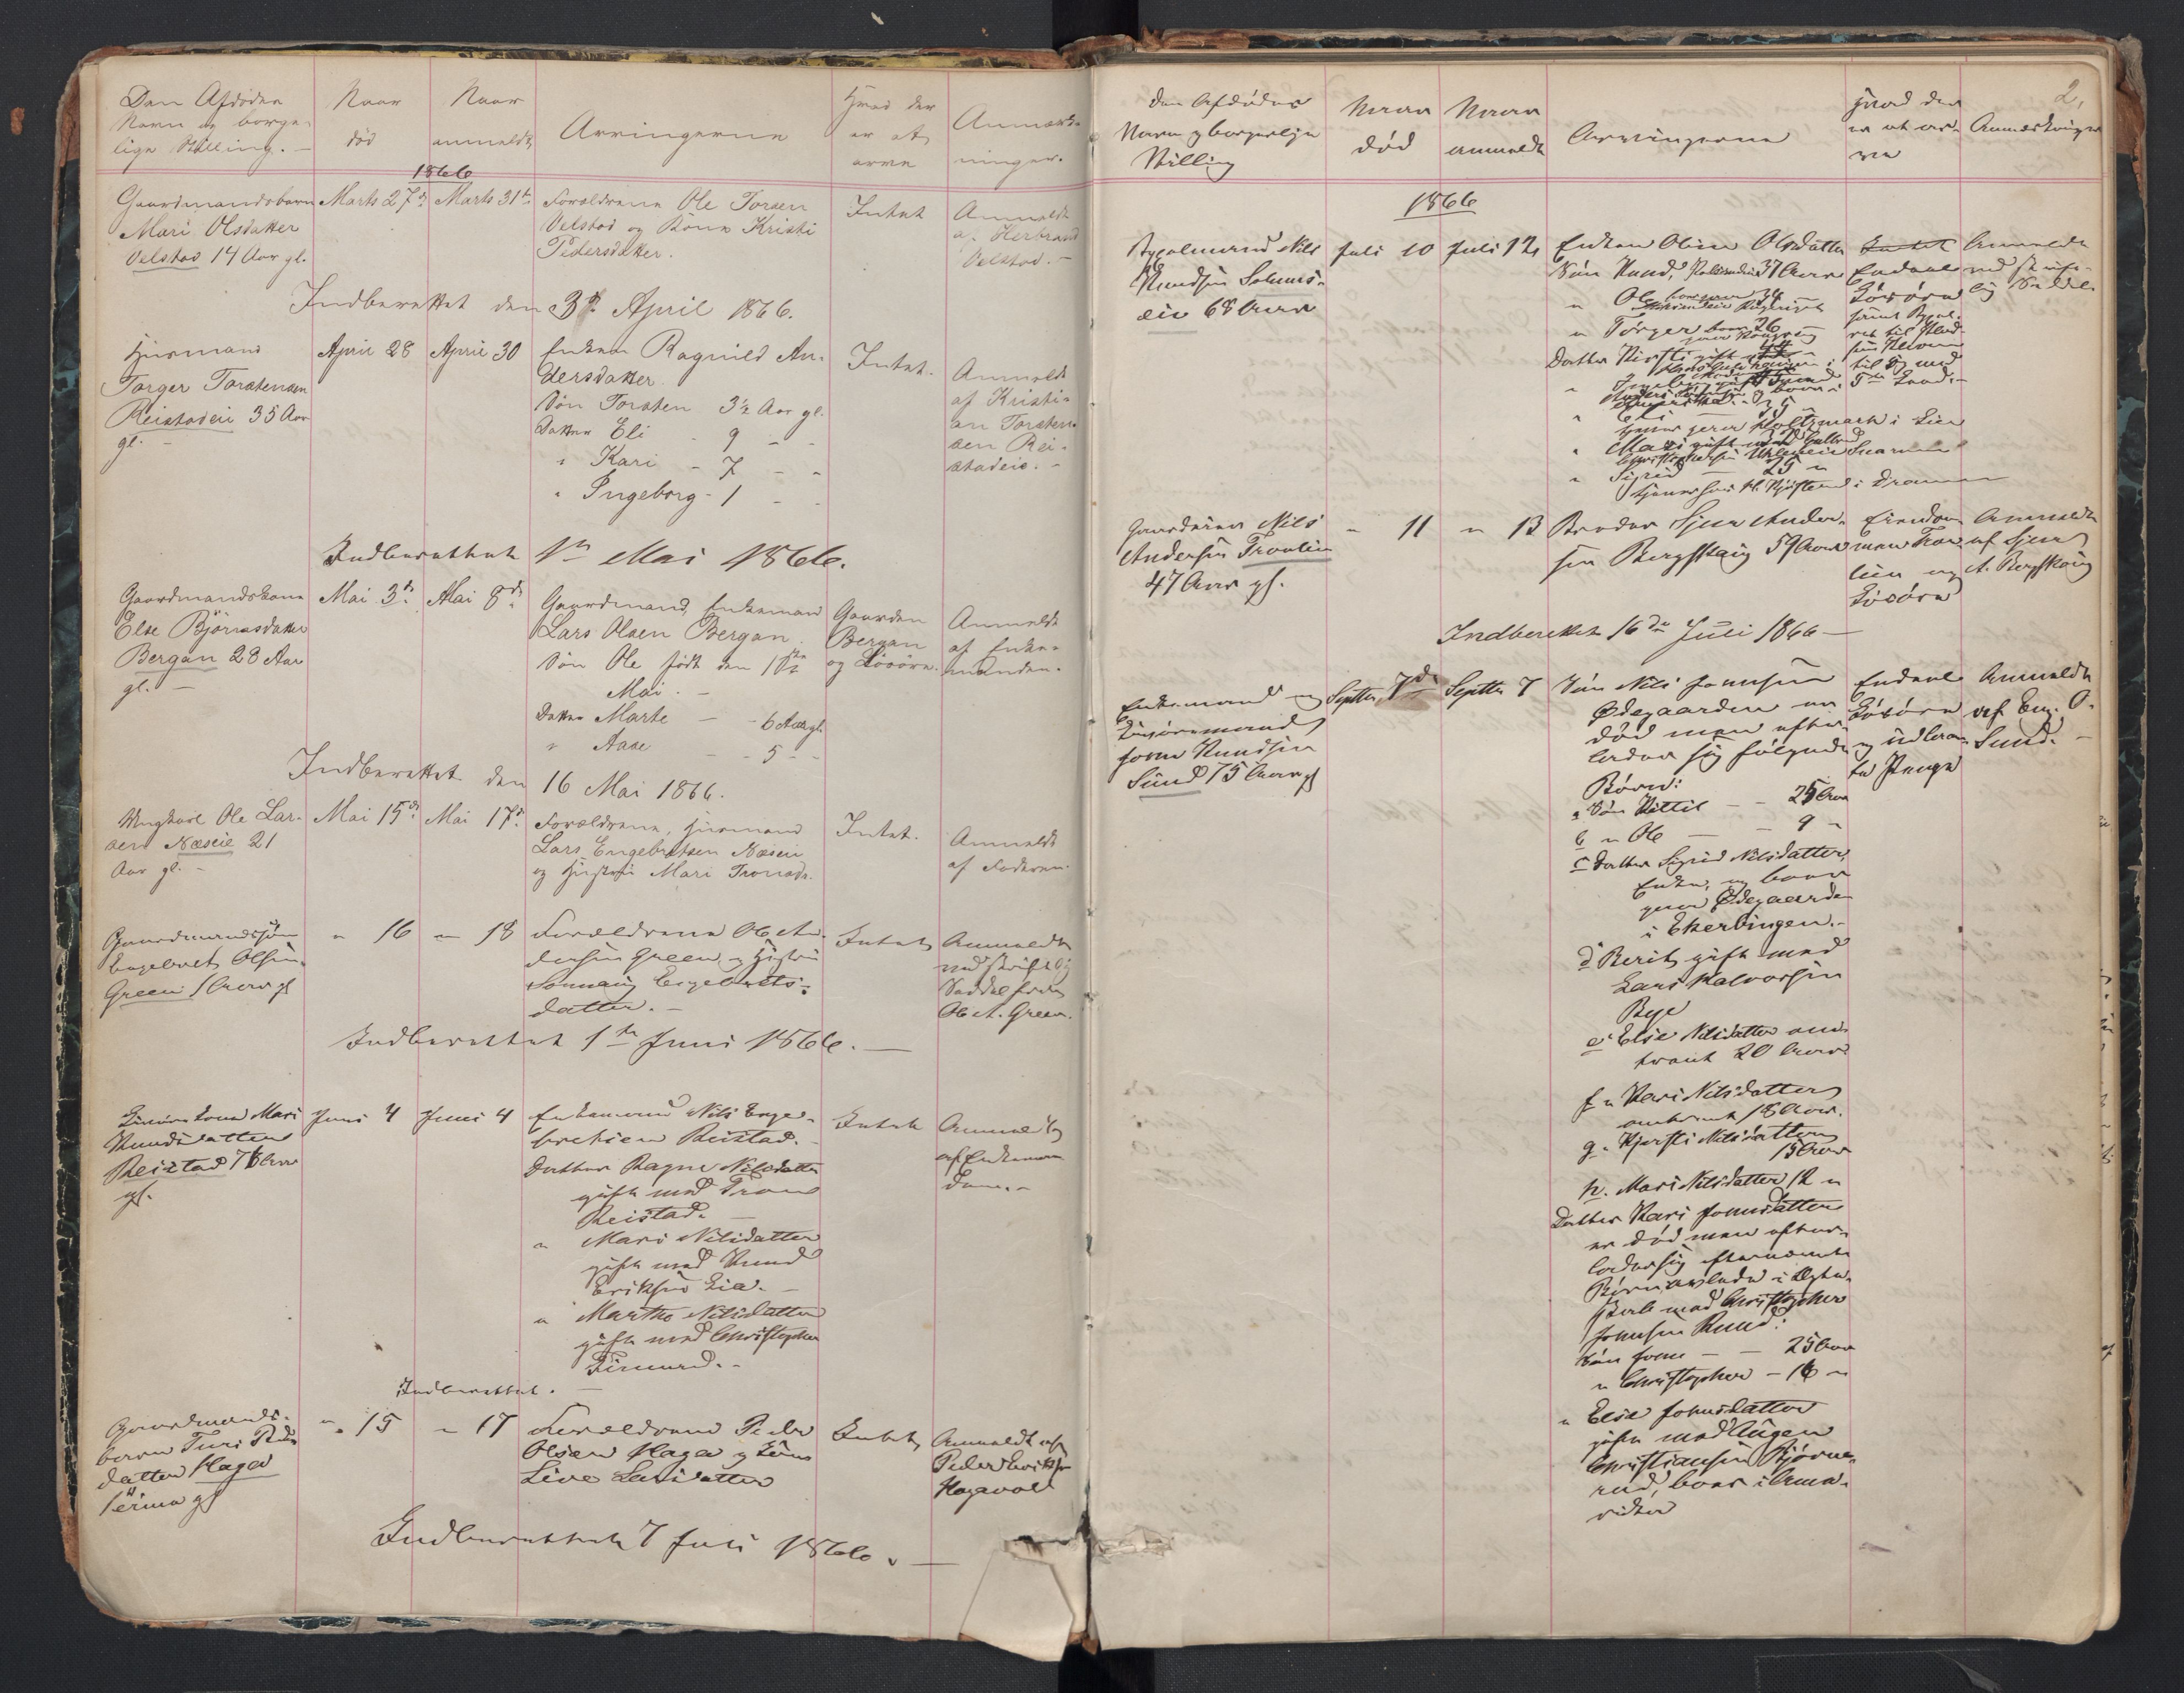 Den Afdødes
Navn og borger-
lige Stilling. -
Naar
død
Naar
anmeldt
Arvingerne
Hvad der
er at
arve
Anmærk-
ninger.
1866
Gaardmandsbarn
Mari Olsdatter
Velstad 14 Aar gl.
Marts 27de
Marts 31te
Forældrene Ole Torsen
Velstad og Kone Kristi
Pedersdatter.
Intet
Anmeldt
af Herbrand
Velstad. -
Indberettet den 3de April 1866.
Husmand
Torger Torstensen
Reistadeie 35 Aar
gl. -
April 28
April 30
Enken Ragnild An-
dersdatter.
Søn Torsten 3½ Aar gl.
Datter Eli - 9 - -
" Kari - 7 - -
" Ingeborg - 1 - -
Intet.
Anmeldt
af Kristi-
an Torsten-
sen Rei-
stadeie. -
Indberettet 1ste Mai 1866.
Gaardmandskone
Else Björnsdatter
Bergan 28 Aar
gl. -
Mai 3de
Mai 8de
Gaardmand, Enkemand
Lars Olsen Bergan.
Søn Ole født den 1ste
Mai. -
Datter Marte - - 6 Aar gl.
" Aase - - 5 - -
Gaarden
Bergan
og Løsøre.
Anmeldt
af Enke-
manden.
Indberettet den 16 Mai 1866.
Ungkarl Ole Lar-
sen Næseie 21
Aar gl. -
Mai 15de
Mai 17de
Forældrene, Husmand
Lars Engebretsen Næseie
og Hustru Mari Tronsdr.
Intet.
Anmeldt
af Faderen.
Gaardmandssøn
Engebret Olsen
Green 1 Aar gl
" 16
" 18
Forældrene Ole An-
dersen Green og Hustru
Engebrets-
datter. -
Intet
Anmeldt
ved skriftlig
Seddel fra
Ole A. Green.
Indberettet 1ste Juni 1866. -
Mari
Knudsdatter
Reistad 76 Aar
gl.
Juni 4
Juni 4
Enkemand Nils Enge-
bretsen Reistad. -
Datter Ragne Nilsdatter
gift med Tron
Reistad. -
" Mari Nilsdatter
gift med Knud
Eriksen Lia. -
" Marthe Nilsdatter
gift med Christopher
Intet
Anmeldt
af Enkeman-
den. -
Indberettet. -
Gaardmands-
barn Turi Peders
datter Haga
gl
" 15
" 17
Forældrene Peder
Olsen Haga og Kone
Live Larsdatter
Intet
Anmeldt af
Peder Eriksen
Hagavold
Indberettet 7 Juli 1866. -
2,
Den Afdødes
Navn og borgerlige
Stilling
Naar
død
Naar
anmeldt
Arvingerne
Hvad der
er at ar-
ve
Anmærkninger
1866
Nils
Knudsen
eie 68 Aar
Juli 10
Juli 12
Enken Olsdatter
Søn Knud, 37 Aar
" Ole
" Torger
Datter Kirsti gift
" Mari gift med
" Sigrid - 25 "
i Drammen
Endeel
Løsøre
Anmeldt
ved skrift-
lig Seddel.
Nils
Andersen
47 Aar gl.
" 11
" 13
Broder Sjur Ander-
sen Bergstaig 59 Aar
og
Løsøre
Anmeldt
af Sjur
A. Bergstaig
Indberettet 16de Juli 1866 -
Enkemand og
Jonn Knudsen
Sund 75 Aar gl
Septbr 7de
Septbr 7
Søn Nils Jonnsen
Ødegaarden er
død men efter-
lader sig følgende
Børn:
a Søn Kittil - - 25 Aar
b " Ole - - 9 "
c Datter Sigrid Nilsdatter,
Enke, og boer
paa Ødegaarden
i
d Berit, gift med
Lars Halvorsen
Bye
e Else Nilsdatter om-
trent 20 Aar
f " Kari Nilsdatter
omtrent 18 Aar.
g. Kjersti Nilsdatter
15 Aar
h. Mari Nilsdatter 12 "
Datter Kari Jonnsdatter
er død men efter-
lader sig efternævnte
Børn, avlede i Ægte-
skab med Christopher
Johnsen Ruud:
Søn Jonn - - 25 Aar
" Christopher - 16 "
" Else Johnsdatter
gift med
Christiansen Bjørne-
rud, boer i Ame-
rika
Endeel
Løsøre
og udlaan-
te Penge
Anmeldt
af Eng. O.
Sund. -